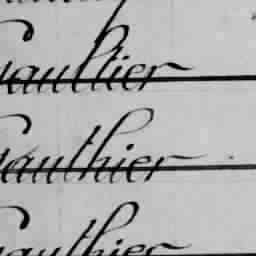 Gaultier
Gauthier
Gauthier